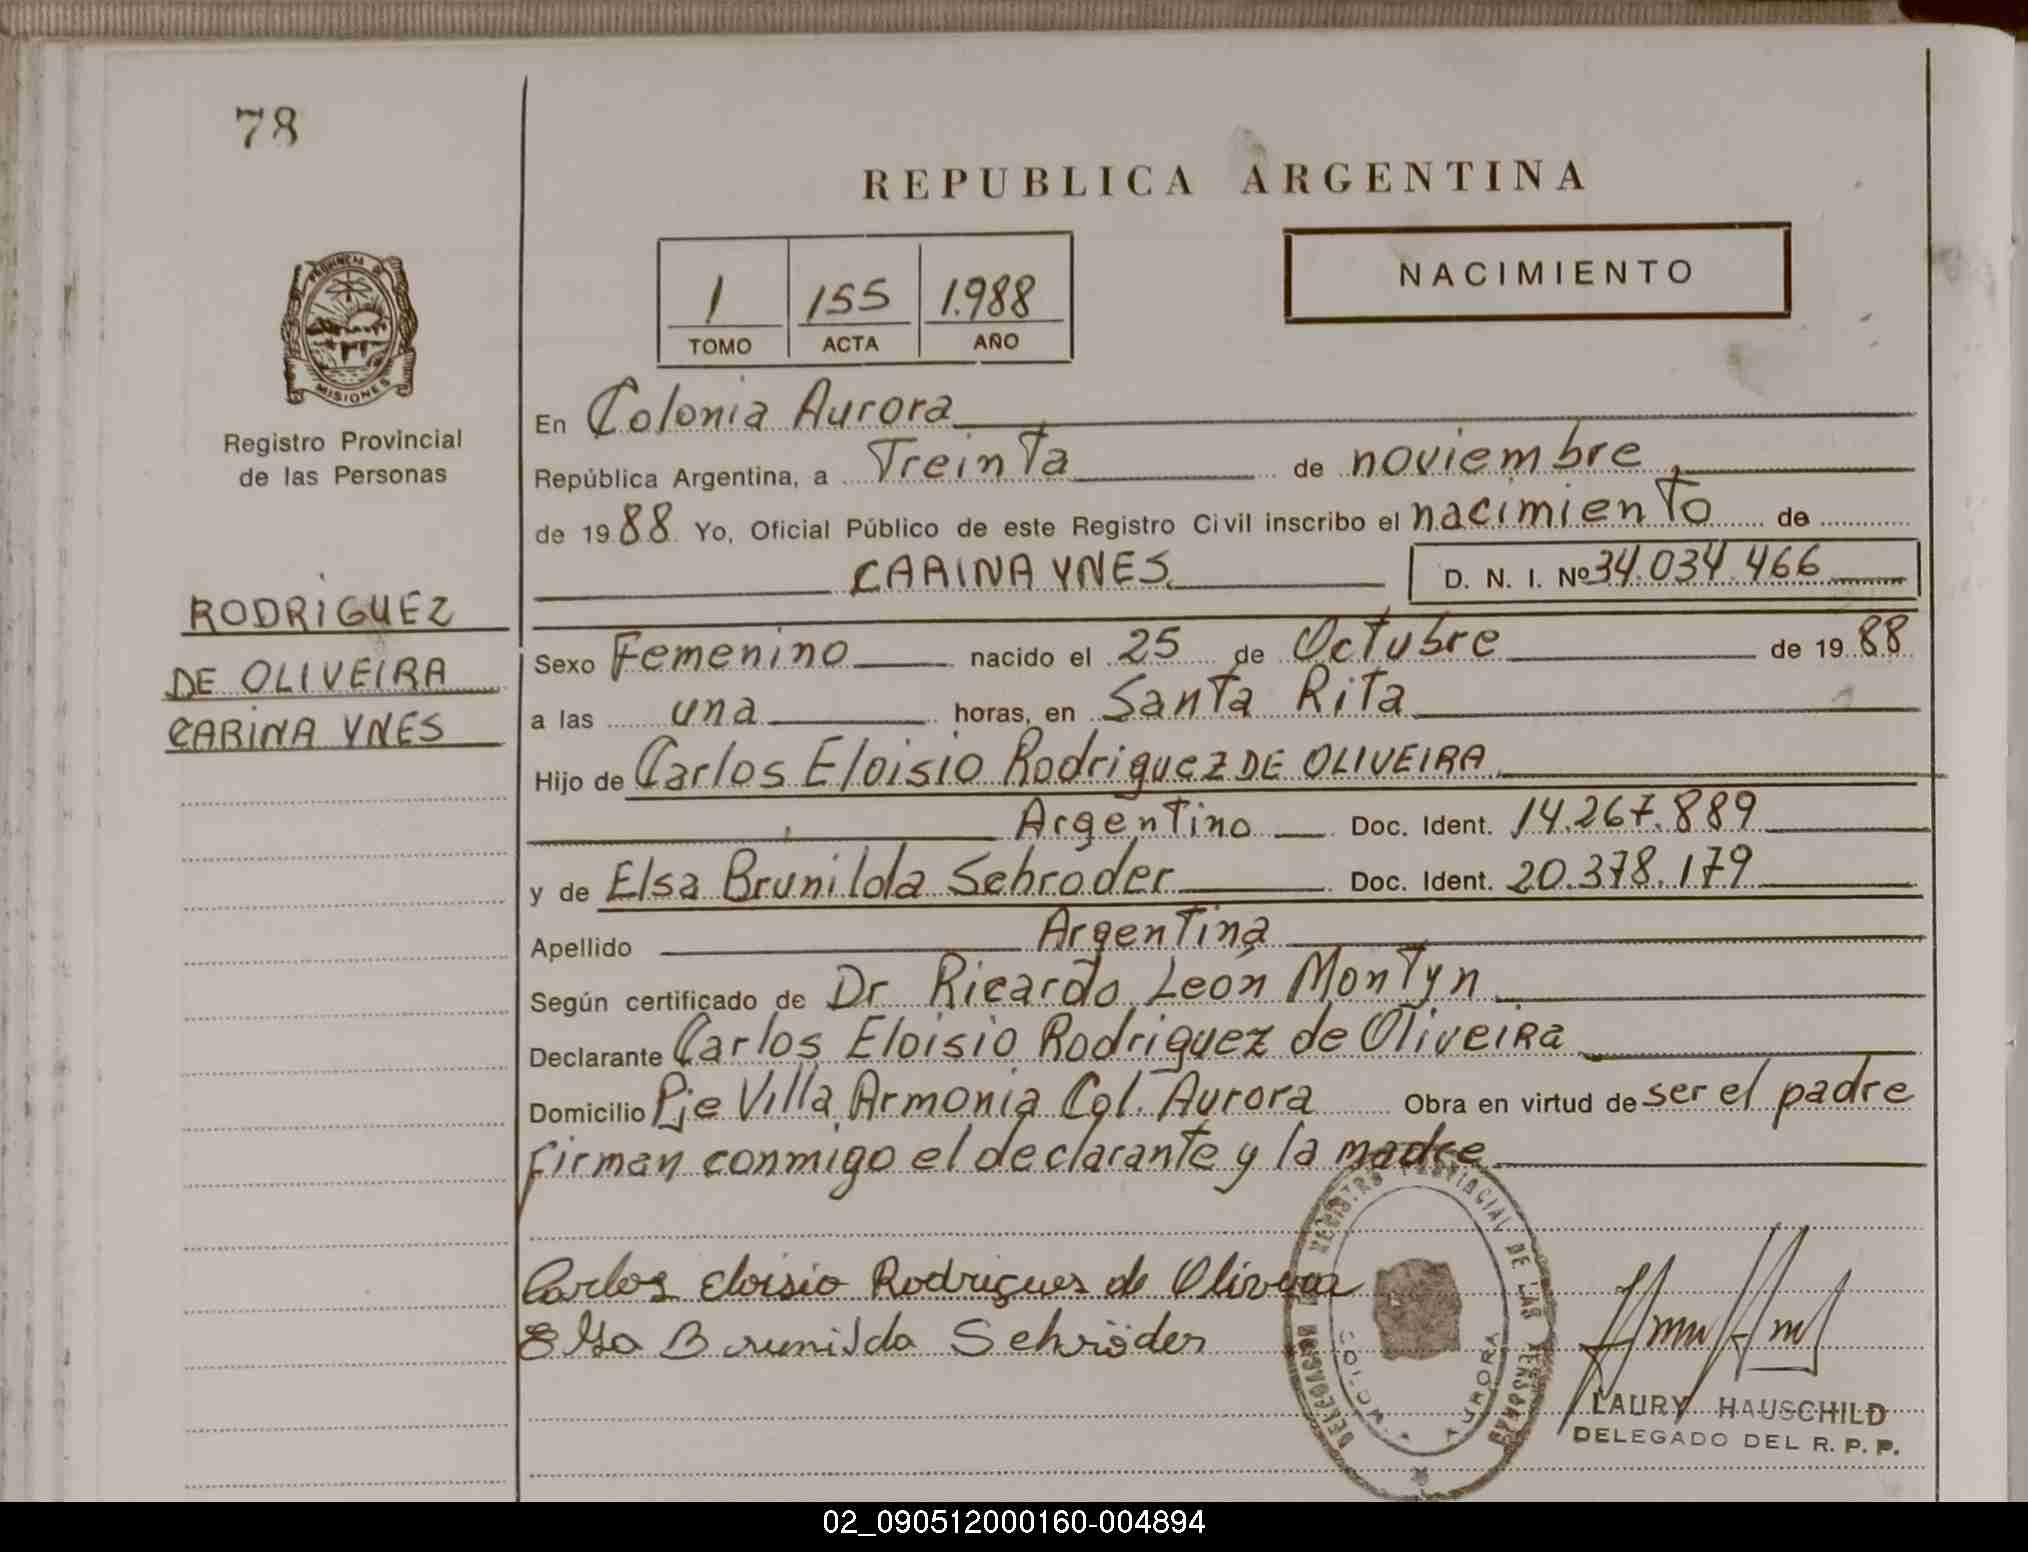 78
REPUBLICA ARGENTINA
1 155 1.988
TOMO ACTA AÑO
NACIMIENTO
PROVINCIA DE
MISIONES
Registro Provincial
de las Personas
RODRIGUEZ
DE OLIVEIRA
CARINA YNES
En Colonia Aurora
República Argentina, a Treinta de noviembre
de 1988 Yo, Oficial Público de este Registro Civil inscribo el nacimiento de
CARINA YNES D. N. I. Nº 34.034.466
Sexo Femenino nacido el 25 de Octubre de 1988
a las una horas, en Santa Rita
Hijo de Carlos Eloisio Rodriguez DE OLIVEIRA
Argentino Doc. Ident. 14.267.889
y de Elsa Brunilda Schroder Doc. Ident. 20.378.179
Apellido Argentina
Según certificado de Dr Ricardo León Montyn
Declarante Carlos Eloisio Rodriguez de Oliveira
Domicilio Pje Villa Armonia Col. Aurora Obra en virtud de ser el padre
firman conmigo el declarante y la madre
Carlos Eloisio Rodrigues de Olivera
Elsa Brunilda Schröder
REGISTRO PROVINCIAL DE LAS PERSONAS
COLONIA AURORA
LAURY HAUSCHILD
DELEGADO DEL R. P. P.
02_090512000160-004894